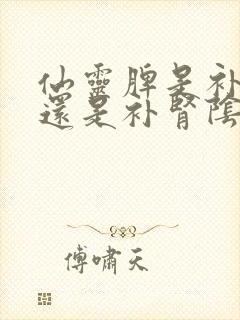 仙靈脾是补
還是补腎陰
傅嘯天